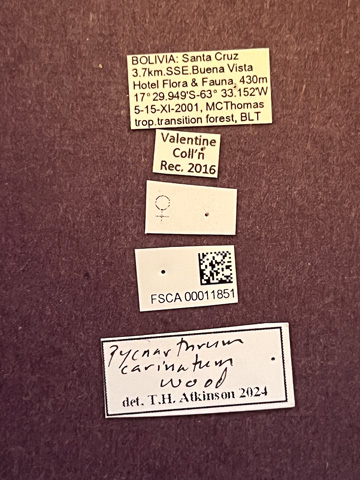 BOLIVIA: Santa Cruz
3.7km.SSE.Buena Vista
Hotel Flora & Fauna, 430m
17°29.949'S-63° 33.152'W
5-15-XI-2001, MCThomas
trop.transition forest, BLT
Valentine
Coll'n
Rec. 2016
♀
FSCA 00011851
Pycnarthrum
carinatum
Wood
det. T.H. Atkinson 2024